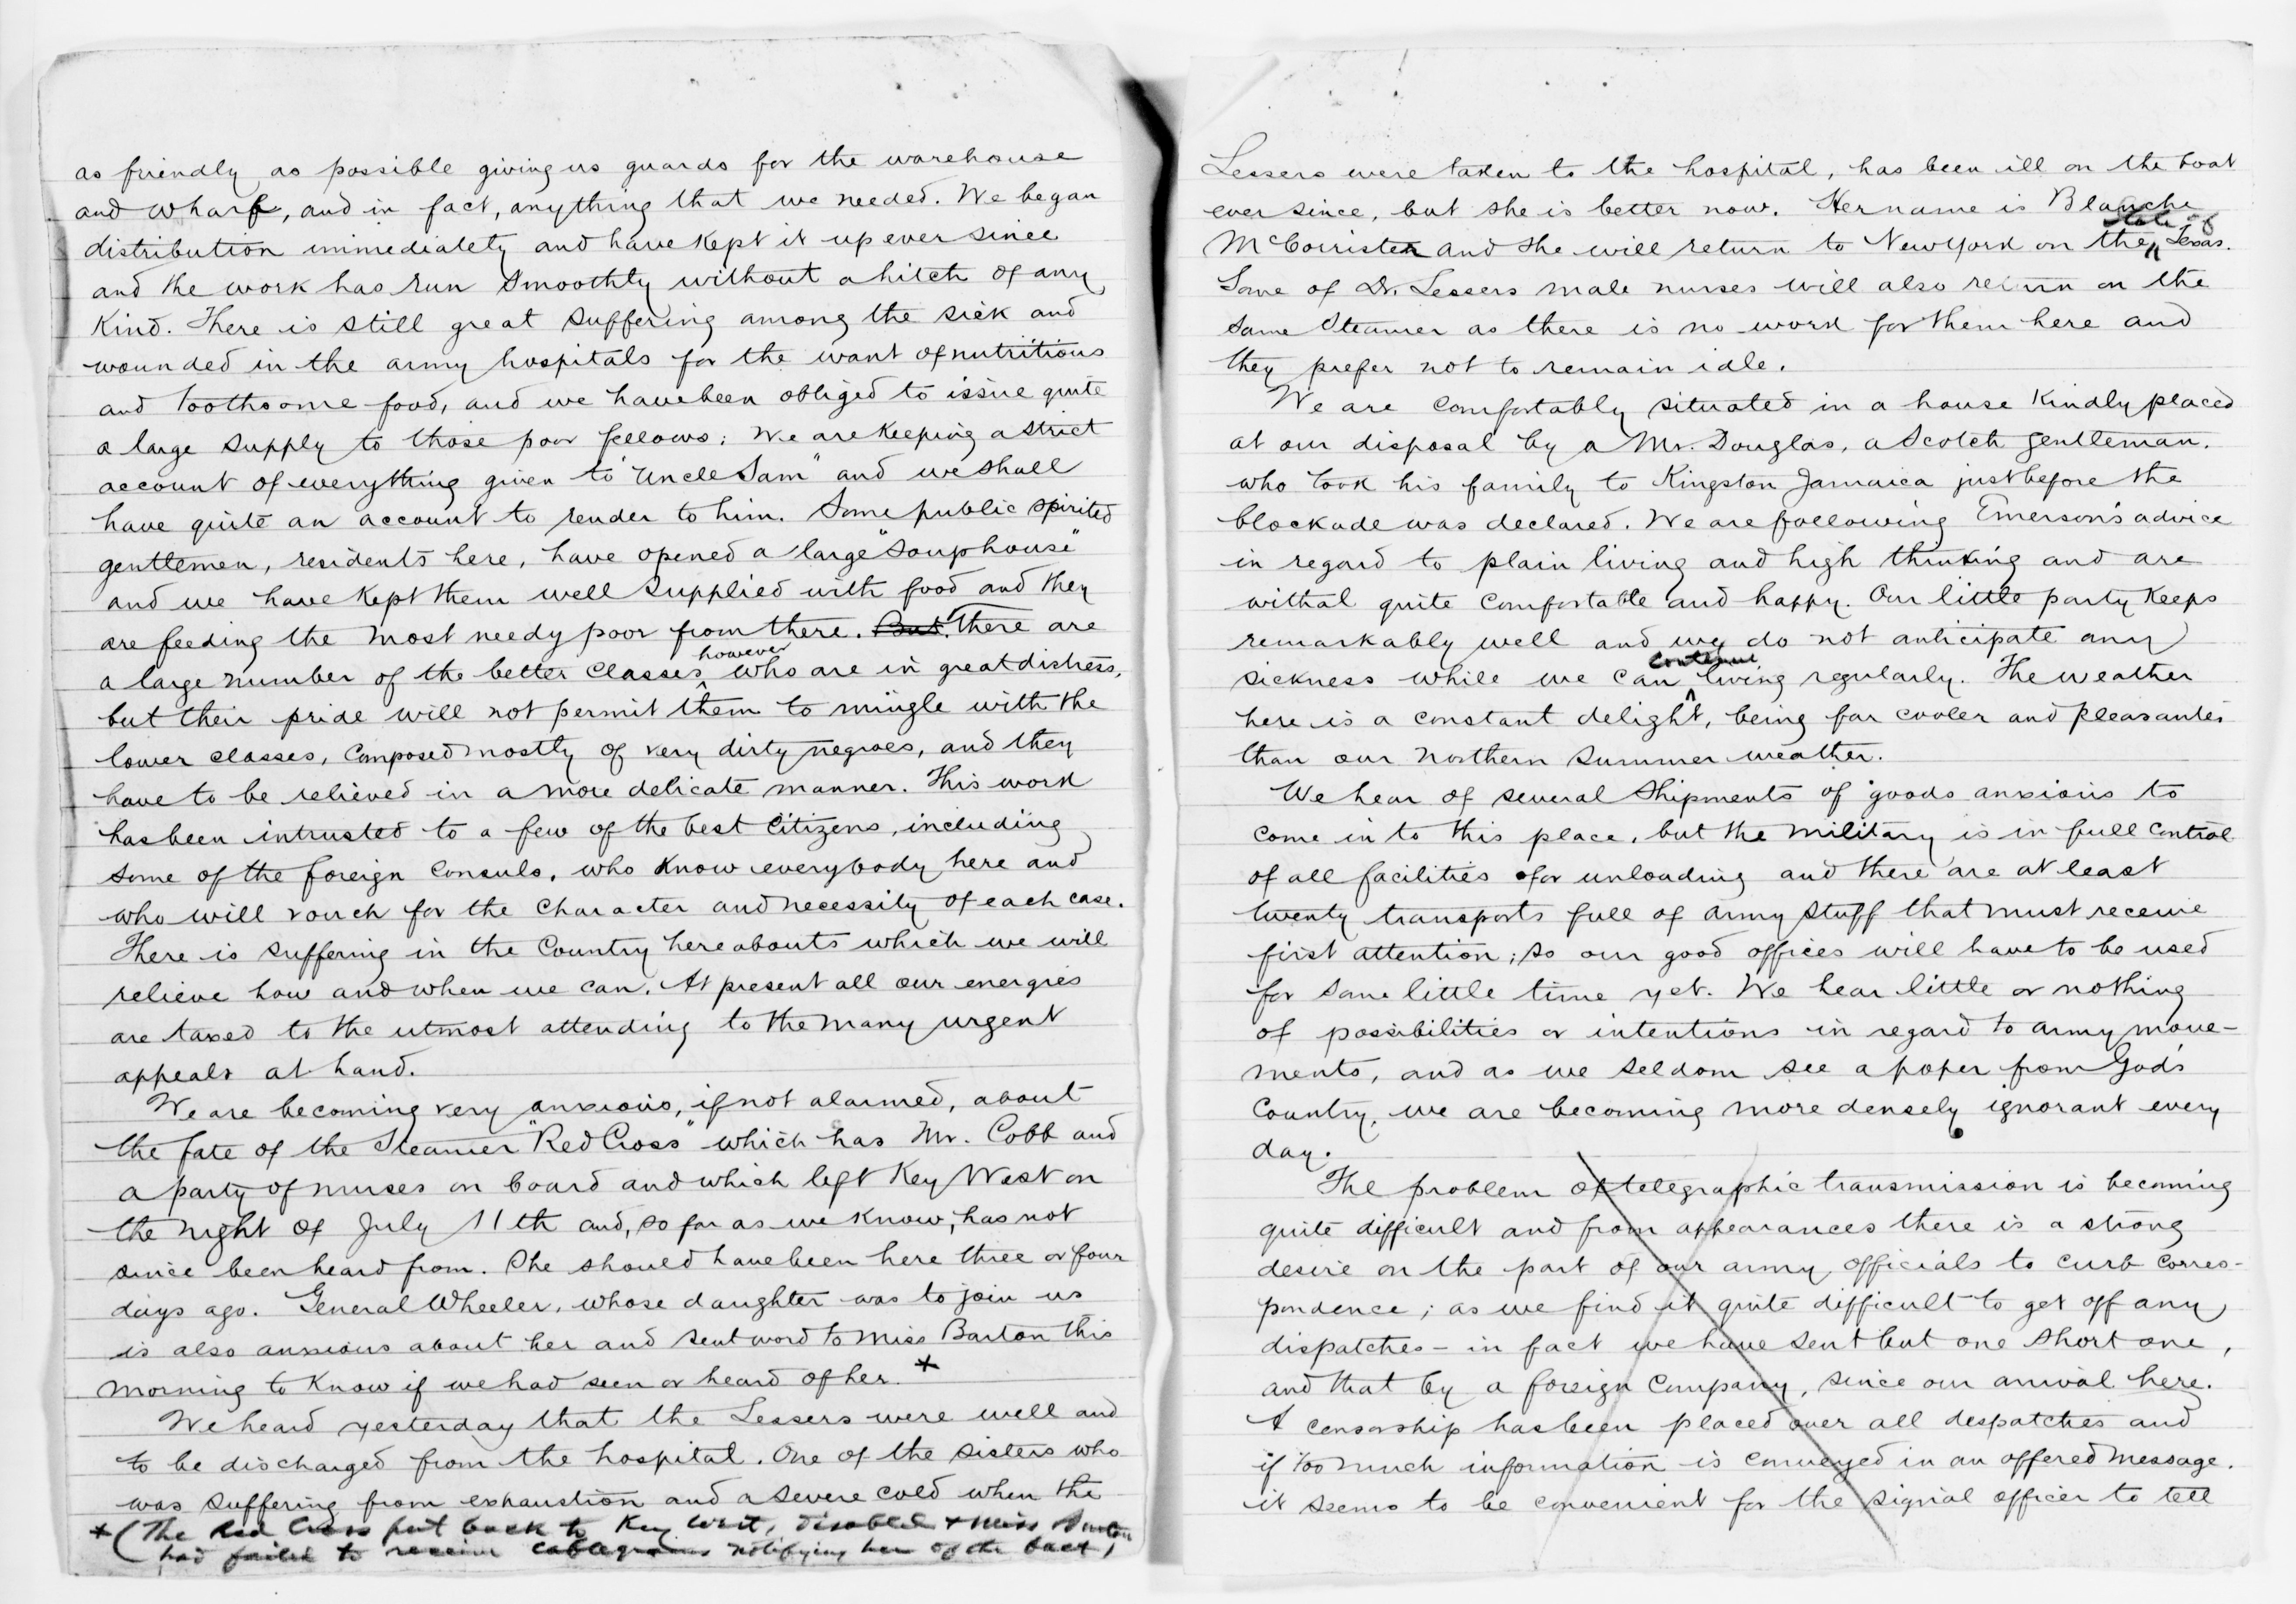 as friendly as possible giving us guards for the warehouse
and wharf, and in fact, anything that we needed. We began
distribution immediately and have kept it up ever since
and the work has run smoothly without a hitch of any
kind. There is still great suffering among the sick and
wounded in the army hospitals for the want of nutritious
and toothsome food, and we have been obliged to issue quite
a large supply to those poor fellows; We are keeping a strict
account of everything given to "Uncle Sam" and we shall
have quite an account to render to him. Some public spirited
gentlemen, residents here, have opened a large "souphouse"
and we have kept them well supplied with food and they
are feeding the most needy poor from there. But there are
a large number of the better classes, however who are in great distress,
but their pride will not permit them to mingle with the
lower classes, composed mostly of very dirty negroes, and they
have to be relieved in a more delicate manner. This work
has been intrusted to a few of the best citizens, including
some of the foreign Consuls, who know everybody here and
who will vouch for the character and necessity of each case.
There is suffering in the Country hereabouts which we will
relieve how and when we can. At present all our energies
are taxed to the utmost attending to the many urgent
appeals at hand.
We are becoming very anxious, if not alarmed, about
the fate of the Steamer "Red Cross" which has Mr. Cobb and
a party of nurses on board and which left Key West on
the night of July 11th and, so far as we know, has not
since been heard from. She should have been here three or four
days ago. General Wheeler, whose daughter was to join us
is also anxious about her and sent word to Miss Barton this
morning to know if we had seen or heard of her. *
We heard yesterday that the Lessers were well and
to be discharged from the hospital. One of the sisters who
was suffering from exhaustion and a severe cold when the
* (The Red Cross put back to Key West, disabled & Miss Barton
had failed to receive cablegrams notifying her of the fact)
Lessers were taken to the hospital, has been ill on the boat
ever since, but she is better now. Her name is Blanche
McCorristen and she will return to New York on the State of Texas.
Some of Dr. Lessers male nurses will also return on the
same Steamer as there is no work for them here and
they prefer not to remain idle.
We are comfortably situated in a house kindly placed
at our disposal by a Mr. Douglas, a Scotch gentleman.
who took his family to Kingston Jamaica just before the
blockade was declared. We are following Emerson's advice
in regard to plain living and high thinking and are
withal quite comfortable and happy. Our little party keeps
remarkably well and we do not anticipate any
sickness while we can continue living regularly. The weather
here is a constant delight, being far cooler and pleasanter
than our northern summer weather.
We hear of several shipments of goods anxious to
come in to this place, but the military is in full control
of all facilities for unloading and there are at least
twenty transports full of army stuff that must receive
first attention; so our good offices will have to be used
for some little time yet. We hear little or nothing
of possibilities or intentions in regard to army move-
ments, and as we seldom see a paper from God's
Country, we are becoming more densely ignorant every
day.
The problem of telegraphic transmission is becoming
quite difficult and from appearances there is a strong
desire on the part of our army officials to curb corres-
pondence; as we find it quite difficult to get off any
dispatches - in fact we have sent but one short one,
and that by a foreign Company, since our arrival here.
A censorship has been placed over all despatches and
if too much information is conveyed in an offered message.
it seems to be convenient for the signal officer to tell